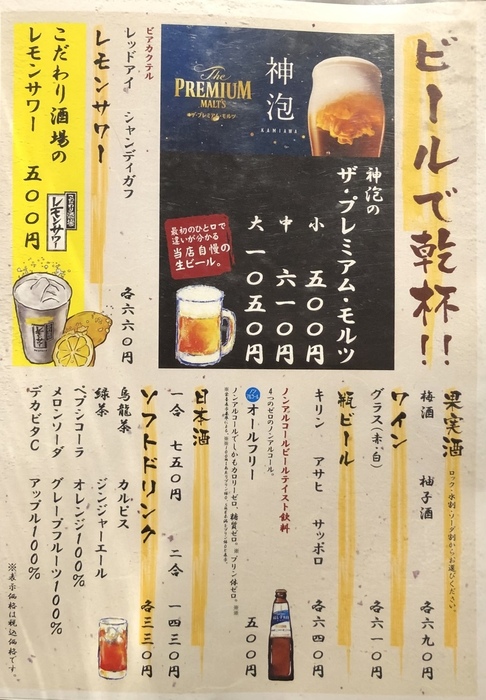 ビールで乾杯!!
The
PREMIUM
MALT'S
ザ・プレミアム・モルツ
神泡
KAMIAWA
神泡の
ザ・プレミアム・モルツ
小 五〇〇円
中 六一〇円
大 一〇五〇円
最初のひと口で
違いが分かる
当店自慢の
生ビール。
ビアカクテル
レッドアイ シャンディガフ 各六六〇円
レモンサワー
こだわり酒場の
レモンサワー 五〇〇円
こだわり酒場の
レモンサワー
果実酒
ロック・水割・ソーダ割からお選びください。
梅酒 柚子酒 各六九〇円
ワイン
グラス(赤・白) 各六一〇円
瓶ビール
キリン アサヒ サッポロ 各六四〇円
ノンアルコールビールテイスト飲料
4つのゼロのノンアルコール。
オールフリー 五〇〇円
ノンアルコールでしかもカロリーゼロ、糖質ゼロ、プリン体ゼロ。
日本酒
一合 七五〇円 二合 一四三〇円
ソフトドリンク 各三三〇円
烏龍茶 カルピス
緑茶 ジンジャーエール
ペプシコーラ オレンジ100%
メロンソーダ グレープフルーツ100%
デカビタC アップル100%
※表示価格は税込価格です